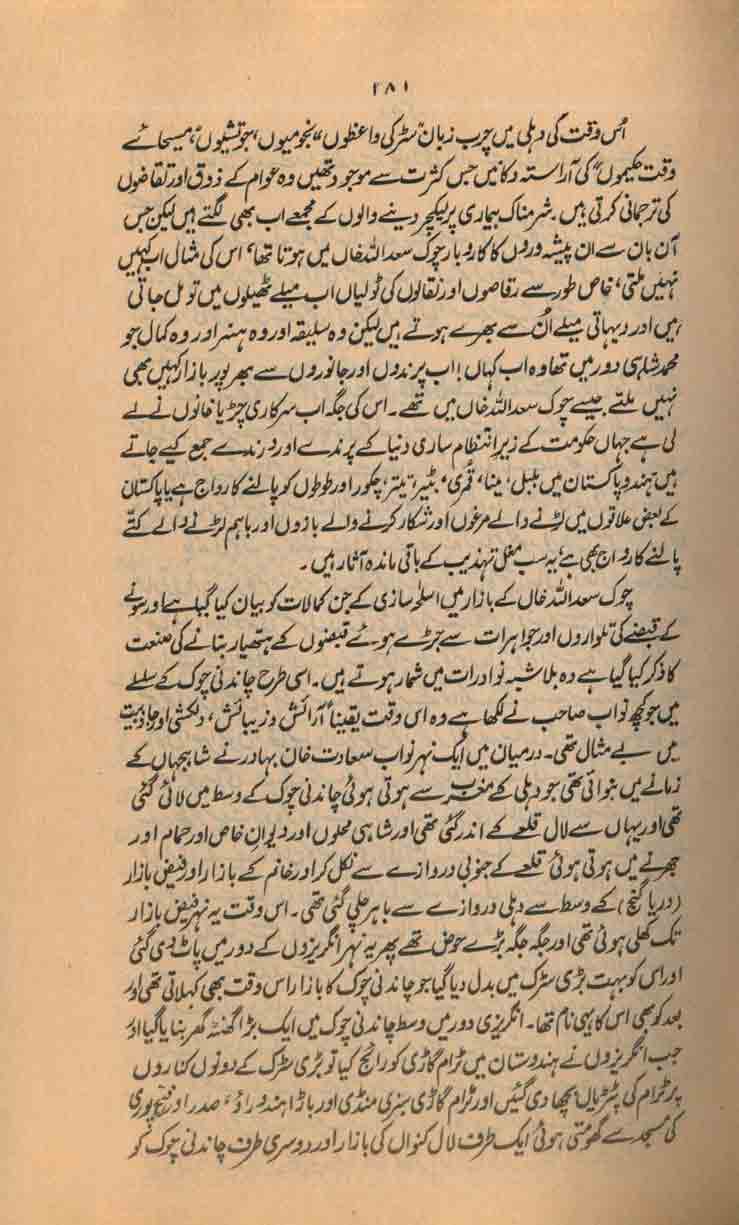 ۲۸۱
اُس وقت کی دہلی میں چرب زبان "سڑکی واعظوں"، نجومیوں، جوتشیوں، مسیحائے
وقت حکیموں" کی آراستہ دکانیں جس کثرت سے موجود تھیں وہ عوام کے ذوق اور تقاضوں
کی ترجمانی کرتی ہیں۔ شرمناک بیماری پر لیکچر دینے والوں کے مجمعے اب بھی لگتے ہیں لیکن جس
آن بان سے ان پیشہ وروں کا کاروبار چوک سعد اللہ خاں میں ہوتا تھا، اس کی مثال اب کہیں
نہیں ملتی، خاص طور سے رقاصوں اور نقالوں کی ٹولیاں اب میلے ٹھیلوں میں تو مل جاتی
ہیں اور دیہاتی میلے اُن سے بھرے ہوتے ہیں لیکن وہ سلیقہ اور وہ ہنر اور وہ کمال جو
محمد شاہی دور میں تھا وہ اب کہاں! اب پرندوں اور جانوروں سے بھرپور بازار کہیں بھی
نہیں ملتے جیسے چوک سعد اللہ خاں میں تھے۔ اس کی جگہ اب سرکاری چڑیا خانوں نے لے
لی ہے جہاں حکومت کے زیر انتظام ساری دنیا کے پرندے اور درندے جمع کیے جاتے
ہیں ہند و پاکستان میں بلبل، مینا، قمری، بٹیر، تیتر، چکور اور طوطوں کو پالنے کا رواج ہے یا پاکستان
کے بعض علاقوں میں لڑنے والے مرغوں اور شکار کرنے والے بازوں اور باہم لڑنے والے کتّے
پالنے کا رواج بھی ہے، یہ سب مغل تہذیب کے باقی ماندہ آثار ہیں۔
چوک سعد اللہ خاں کے بازار میں اسلحہ سازی کے جن کمالات کو بیان کیا گیا ہے اور سونے
کے قبضے کی تلواروں اور جواہرات سے جڑے ہوئے قبضوں کے ہتھیار بنانے کی صنعت
کا ذکر کیا گیا ہے وہ بلاشبہ نوادرات میں شمار ہوتے ہیں۔ اسی طرح چاندنی چوک کے سلسلے
میں جو کچھ نواب صاحب نے لکھا ہے وہ اس وقت یقیناً آرائش و زیبائش، دلکشی اور جاذبیت
میں بے مثال تھی۔ درمیان میں ایک نہر نواب سعادت خان بہادر نے شاہجہاں کے
زمانے میں بنوائی تھی جو دہلی کے مغرب سے ہوتی ہوئی چاندنی چوک کے وسط میں لائی گئی
تھی اور یہاں سے لال قلعے کے اندر گئی تھی اور شاہی محلوں اور دیوان خاص اور حمام اور
جھرنے میں ہوتی ہوئی قلعے کے جنوبی دروازے سے نکل کر اور خانم کے بازار اور فیض بازار
(دریا گنج) کے وسط سے دہلی دروازے سے باہر چلی گئی تھی۔ اس وقت یہ نہر فیض بازار
تک کھلی ہوئی تھی اور جگہ جگہ بڑے حوض تھے پھر یہ نہر انگریزوں کے دور میں پاٹ دی گئی
اور اس کو بہت بڑی سڑک میں بدل دیا گیا جو چاندنی چوک کا بازار اس وقت بھی کہلاتی تھی اور
بعد کو بھی اس کا یہی نام تھا۔ انگریزی دور میں وسط چاندنی چوک میں ایک بڑا گھنٹہ گھر بنایا گیا اور
جب انگریزوں نے ہندوستان میں ٹرام گاڑی کو رائج کیا تو بڑی سڑک کے دونوں کناروں
پر ٹرام کی پٹڑیاں بچھا دی گئیں اور ٹرام گاڑی سبزی منڈی اور باڑا ہندو راؤ، صدر اور فتح پوری
کی مسجد سے گھومتی ہوئی ایک طرف لال کنواں کی بازار اور دوسری طرف چاندنی چوک کو